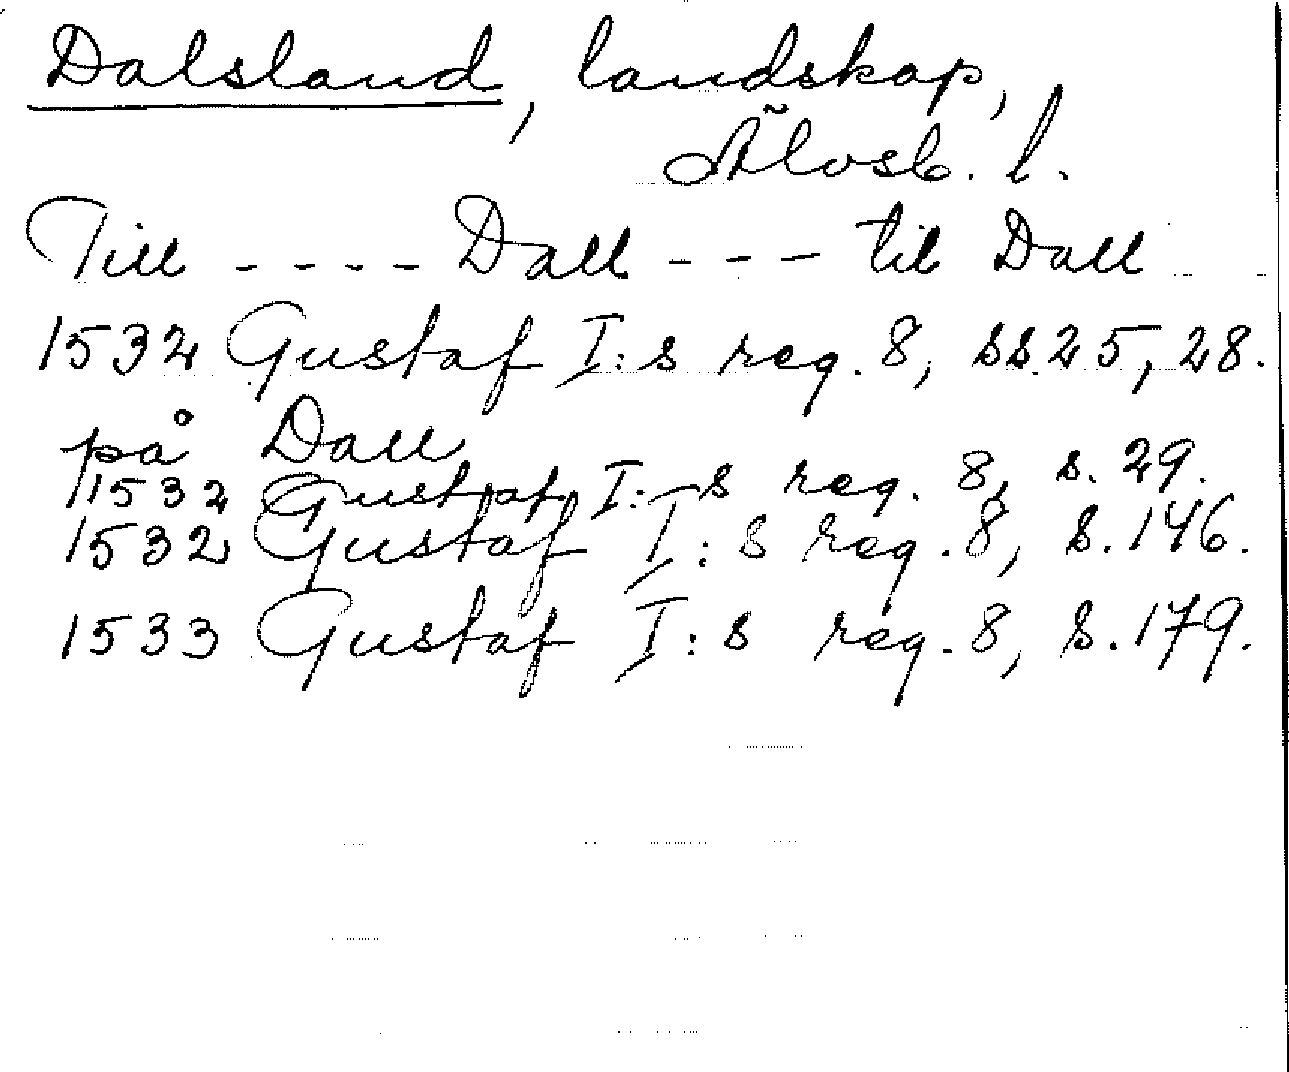 Dalsland, landskap,
Älvsb. l.
Till - - - - Dall - - - til Dall
1532 Gustaf I:s reg. 8, ss. 25, 28.
på Dall
1532 Gustaf I:s reg. 8, s. 29.
1532 Gustaf I:s reg. 8, s. 146.
1533 Gustaf I:s reg. 8, s. 179.